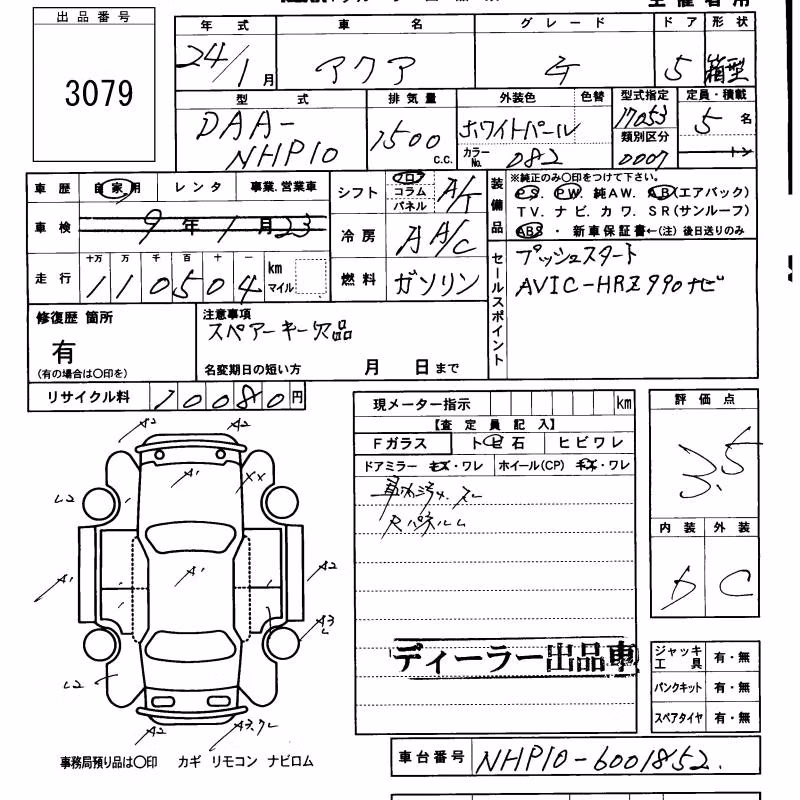 出品番号
3079
年式 車名 グレード ドア 形状
24/1月 アクア 5 箱型
型式 排気量 外装色 色替 型式指定 定員・積載
DAA-NHP10 1500 c.c. ホワイトパール 17053 5名
カラーNo. 082 類別区分 0007 トン
車歴 自家用 レンタ 事業.営業車
シフト フロ コラム パネル A/T
装備品 ※純正のみ〇印をつけて下さい。
PS. PW. 純AW. AB(エアバック)
TV. ナビ. カワ. SR(サンルーフ)
ABS ・ 新車保証書←(注) 後日送りのみ
車検 9年1月23
冷房 A A/C
セールスポイント プッシュスタート
AVIC-HRZ990ナビ
走行 十万 万 千 百 十 一
110504 km マイル
燃料 ガソリン
修復歴 箇所
有
(有の場合は〇印を)
注意事項
スペアーキー欠品
名変期日の短い方 月 日まで
リサイクル料 10080円
現メーター指示 km
【査定員記入】
Fガラス トビ石 ヒビワレ
ドアミラー キズ・ワレ ホイール(CP) キズ・ワレ
評価点
3.5
内装 外装
D C
A2 A2
A1 XX
L2
A1 A1 A2
A3
L2
A2
ディーラー出品車
ジャッキ工具 有・無
パンクキット 有・無
スペアタイヤ 有・無
事務局預り品は〇印 カギ リモコン ナビロム
車台番号 NHP10-6001852.